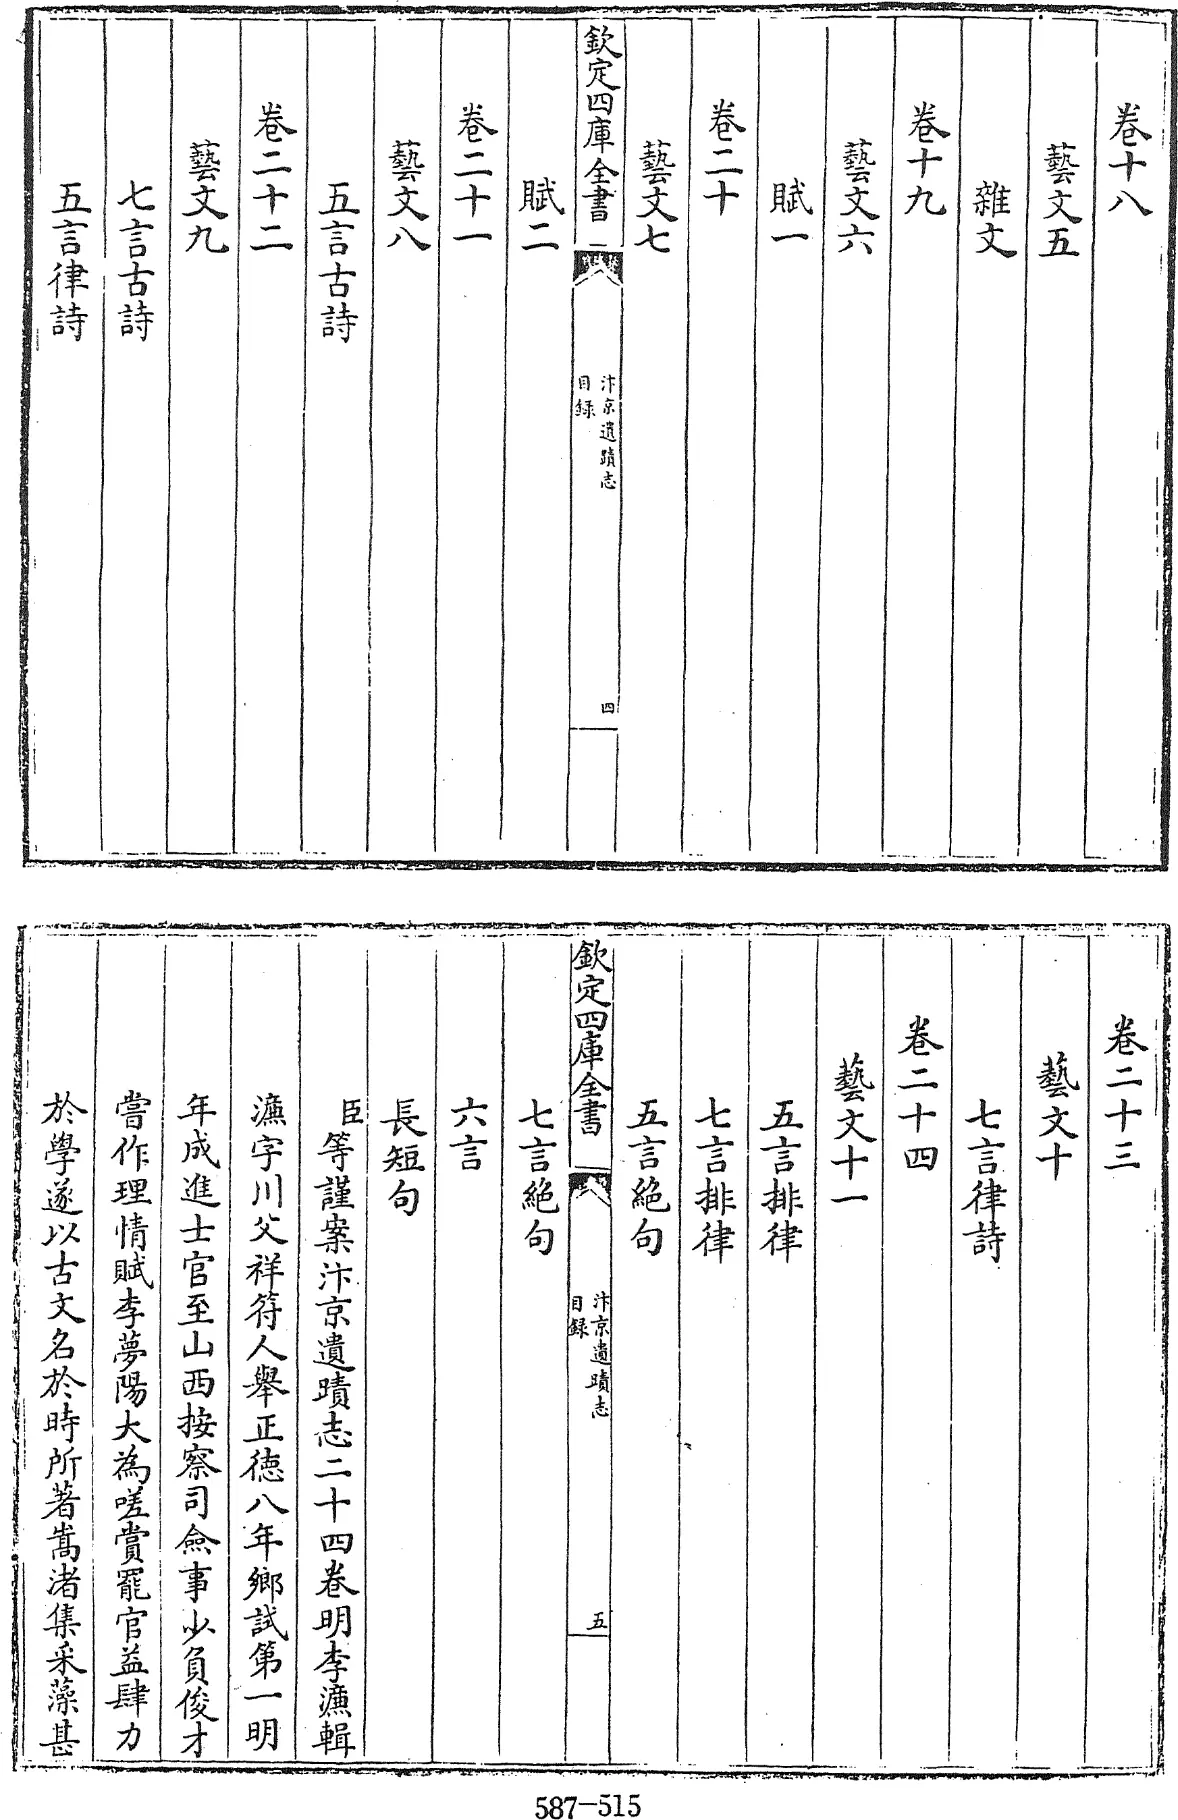 卷十八
藝文五
雜文
卷十九
藝文六
賦一
卷二十
藝文七
欽定四庫全書
汴京遺蹟志
目録
四
賦二
卷二十一
藝文八
五言古詩
卷二十二
藝文九
七言古詩
五言律詩
卷二十三
藝文十
七言律詩
卷二十四
藝文十一
五言排律
七言排律
五言絶句
欽定四庫全書
汴京遺蹟志
目録
五
七言絶句
六言
長短句
臣等謹案汴京遺蹟志二十四卷明李濂輯
濂字川父祥符人舉正徳八年鄉試第一明
年成進士官至山西按察司僉事少負俊才
嘗作理情賦李夢陽大為嗟賞罷官益肆力
於學遂以古文名於時所著嵩渚集采藻甚
587-515